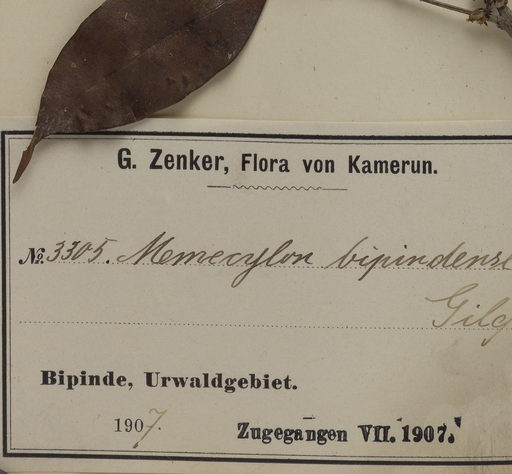 G. Zenker, Flora von Kamerun.
№ 3305. Memecylon bipindense
Gilg
Bipinde, Urwaldgebiet.
1907.
Zugegangen VII. 1907.